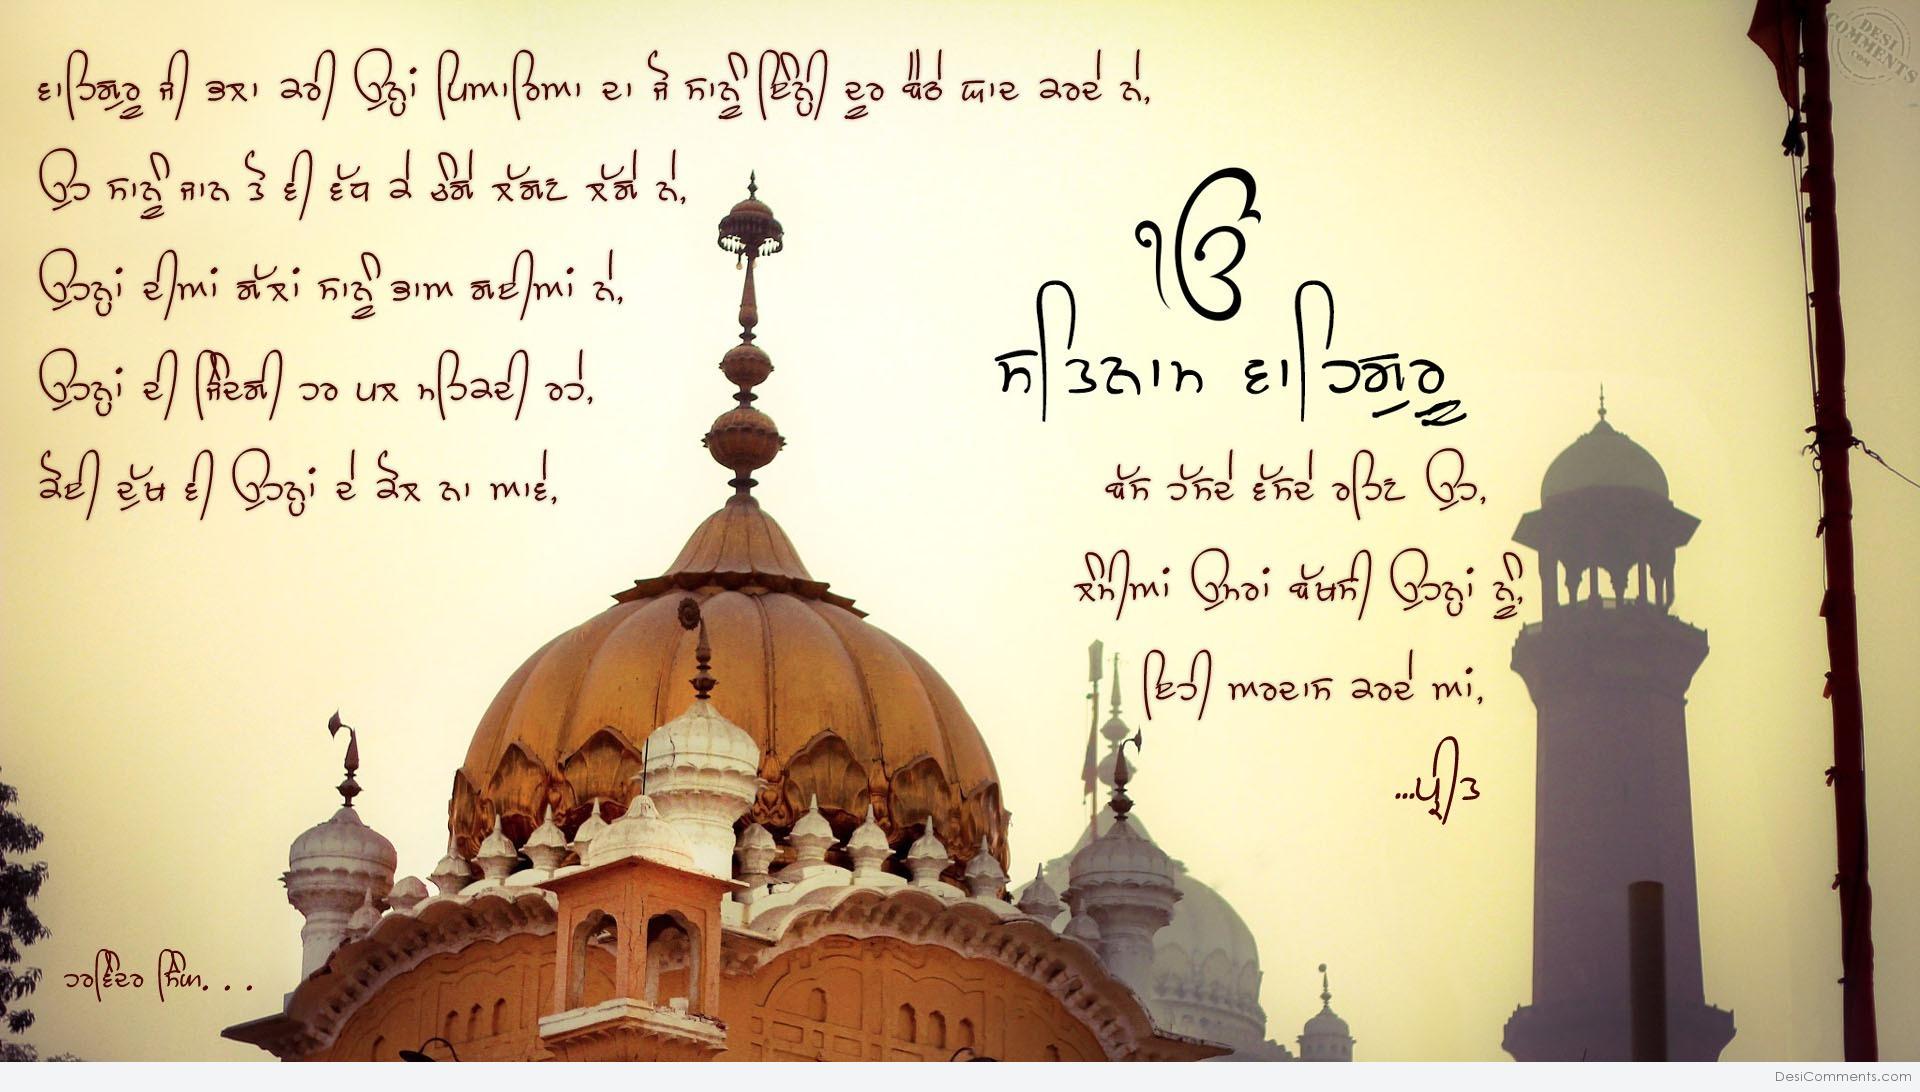 ਵਾਹਿਗੁਰੂ ਜੀ ਭਲਾ ਕਰੀ ਉਨ੍ਹਾਂ ਪਿਆਰਿਆ ਦਾ ਜੋ ਸਾਨੂੰ ਇੰਨ੍ਹੀ ਦੂਰ ਬੈਠੇ ਯਾਦ ਕਰਦੇ ਨੇ,
ਉਹ ਸਾਨੂੰ ਜਾਨ ਤੋ ਵੀ ਵੱਧ ਕੇ ਚੰਗੇ ਲੱਗਣ ਲੱਗੇ ਨੇ,
ਉਹਨ੍ਹਾਂ ਦੀਆਂ ਗੱਲਾਂ ਸਾਨੂੰ ਭਾਅ ਗਈਆਂ ਨੇ,
ਉਹਨ੍ਹਾਂ ਦੀ ਜ਼ਿੰਦਗੀ ਹਰ ਪਲ ਮਹਿਕਦੀ ਰਹੇ,
ਕੋਈ ਦੁੱਖ ਵੀ ਉਹਨ੍ਹਾਂ ਦੇ ਕੋਲ ਨਾ ਆਵੇ,
ੴ
ਸਤਿਨਾਮ ਵਾਹਿਗੁਰੂ
ਬੱਸ ਹੱਸਦੇ ਵੱਸਦੇ ਰਹਿਣ ਉਹ,
ਲੰਮੀਆਂ ਉਮਰਾਂ ਬੱਖਸੀ ਉਹਨ੍ਹਾਂ ਨੂੰ,
ਇਹੀ ਅਰਦਾਸ ਕਰਦੇ ਆਂ,
...ਪ੍ਰੀਤ
ਹਰਵਿੰਦਰ ਸਿੰਘ. . .
DESI COMMENTS .COM
DesiComments.com